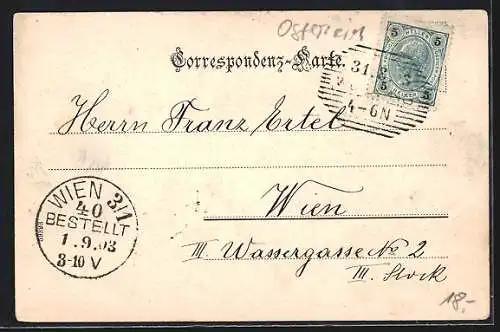 Österreich
Correspondenz-Karte.
5 HELLER 5
5 HELLER 5
31.
4-6N
Herrn Franz Ertel
Wien
III. Wassergasse No 2
III. Stock
WIEN 3/1
40
BESTELLT
1.9.03
8-10V
18.-